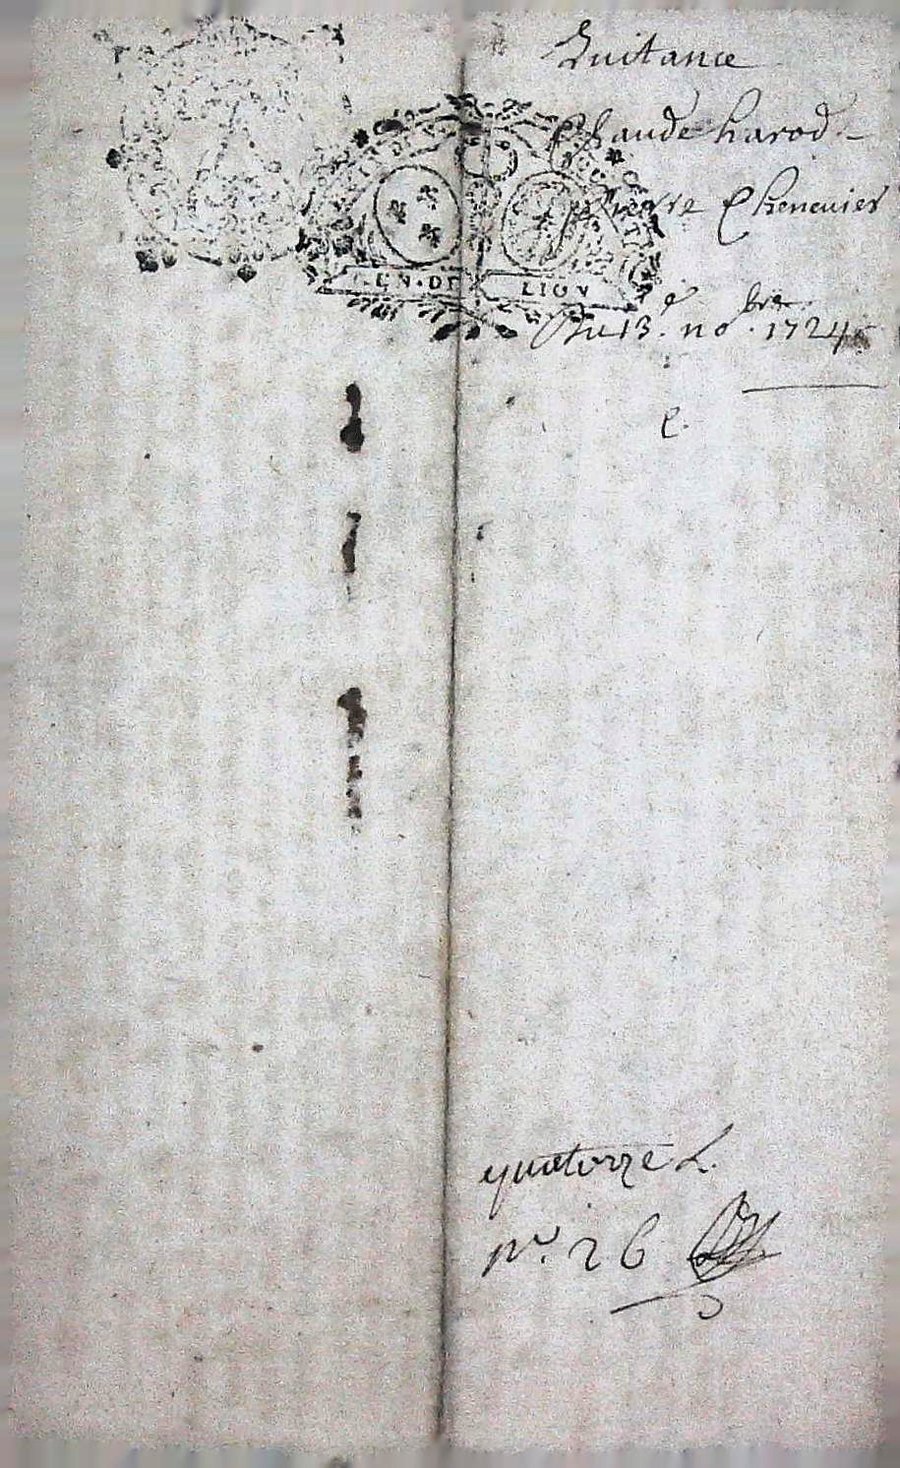 Quitance
Claude harod -
Pierre Chenevier
GEN. DE LION
Du 13.e no.bre 1724
C.
quatorze L.
nº. 26